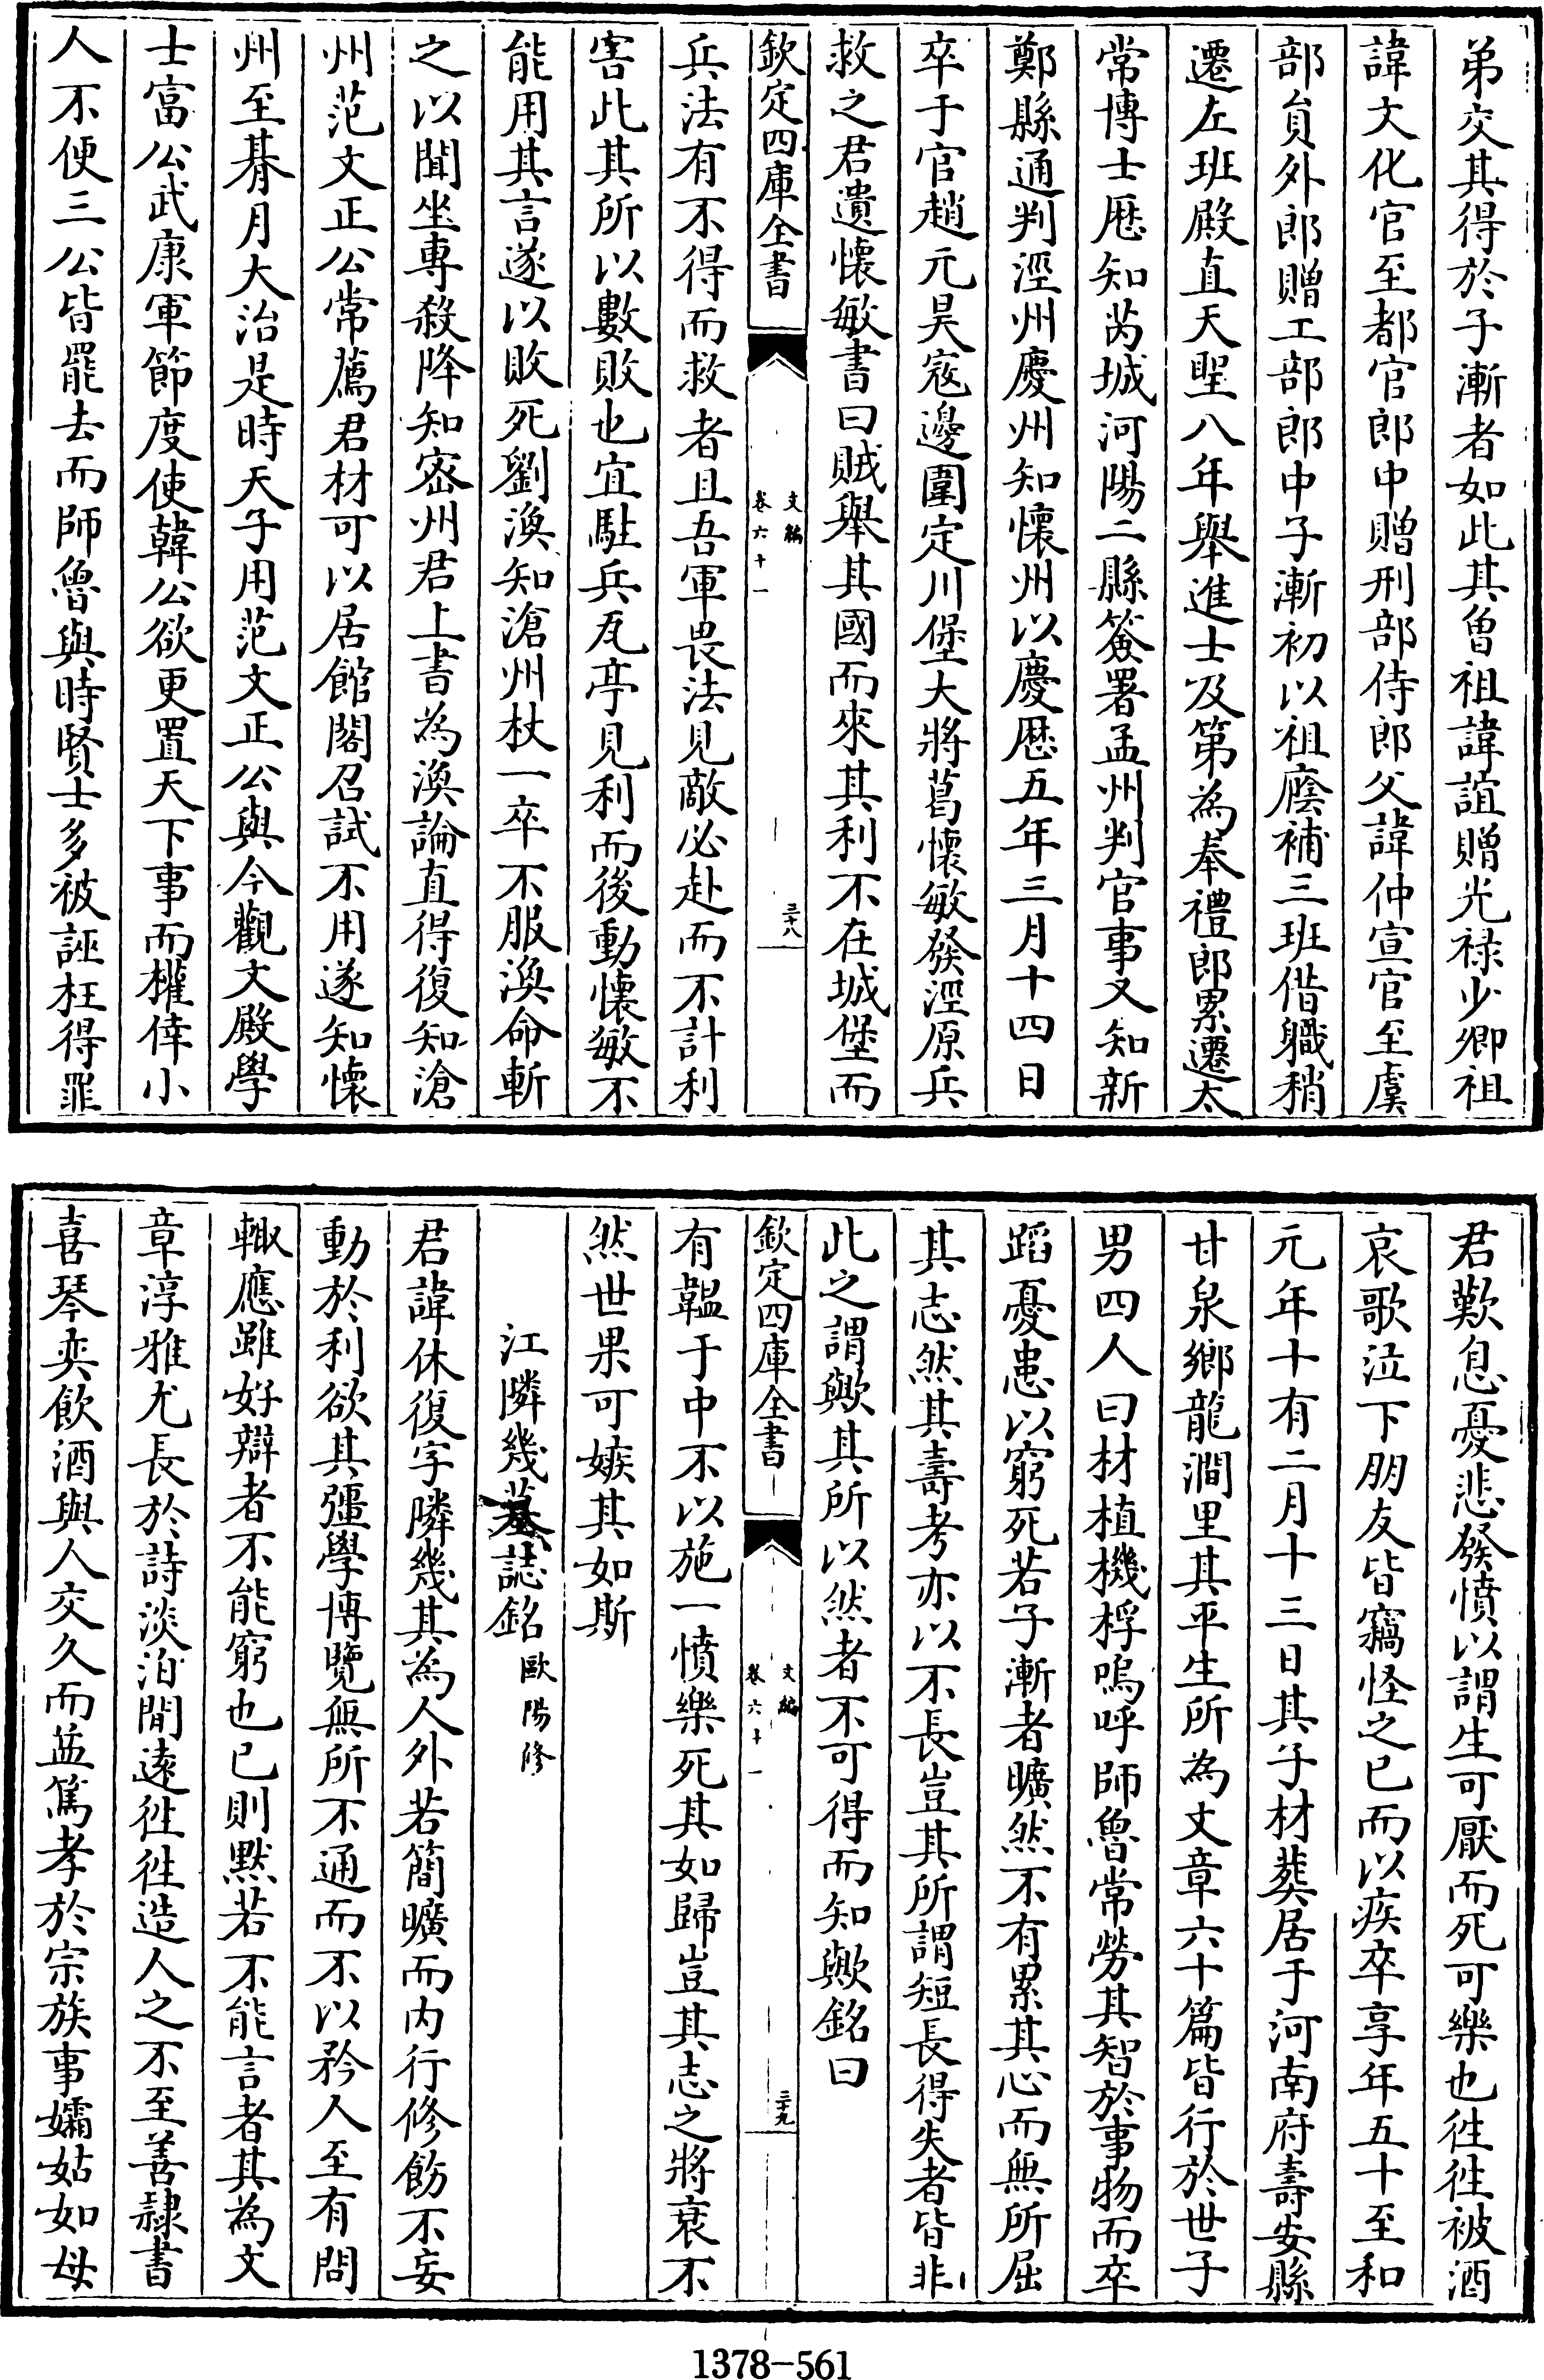 弟交其得於子漸者如此其曾祖諱誼贈光禄少卿祖
諱文化官至都官郎中贈刑部侍郎父諱仲宣官至虞
部員外郎贈工部郎中子漸初以祖廕補三班借職稍
遷左班殿直天聖八年舉進士及第為奉禮郎累遷太
常博士歷知芮城河陽二縣簽署孟州判官事又知新
鄭縣通判涇州慶州知懷州以慶歷五年三月十四日
卒于官趙元昊寇邊圍定川堡大將葛懷敏發涇原兵
救之君遺懷敏書曰賊舉其國而來其利不在城堡而
欽定四庫全書
文編
卷六十一
三十八
兵法有不得而救者且吾軍畏法見敵必赴而不計利
害此其所以數敗也宜駐兵瓦亭見利而後動懷敏不
能用其言遂以敗死劉渙知滄州杖一卒不服渙命斬
之以聞坐專殺降知密州君上書為渙論直得復知滄
州范文正公常薦君材可以居館閣召試不用遂知懷
州至朞月大治是時天子用范文正公與今觀文殿學
士富公武康軍節度使韓公欲更置天下事而權倖小
人不便三公皆罷去而師魯與時賢士多被誣枉得罪
君歎息憂悲發憤以謂生可厭而死可樂也徃徃被酒
哀歌泣下朋友皆竊怪之已而以疾卒享年五十至和
元年十有二月十三日其子材葬居于河南府壽安縣
甘泉鄉龍澗里其平生所為文章六十篇皆行於世子
男四人曰材植機桴嗚呼師魯常勞其智於事物而卒
蹈憂患以窮死若子漸者曠然不有累其心而無所屈
其志然其壽考亦以不長豈其所謂短長得失者皆非
此之謂歟其所以然者不可得而知歟銘曰
欽定四庫全書
文編
卷六十一
三十九
有韞于中不以施一憤樂死其如歸豈其志之將衰不
然世果可嫉其如斯
江隣幾墓誌銘歐陽修
君諱休復字隣幾其為人外若簡曠而内行修飭不妄
動於利欲其彊學博覽無所不通而不以矜人至有問
輙應雖好辯者不能窮也已則黙若不能言者其為文
章淳雅尤長於詩淡泊閒遠徃徃造人之不至善隷書
喜琴奕飲酒與人交久而益篤孝於宗族事孀姑如母
1378-561